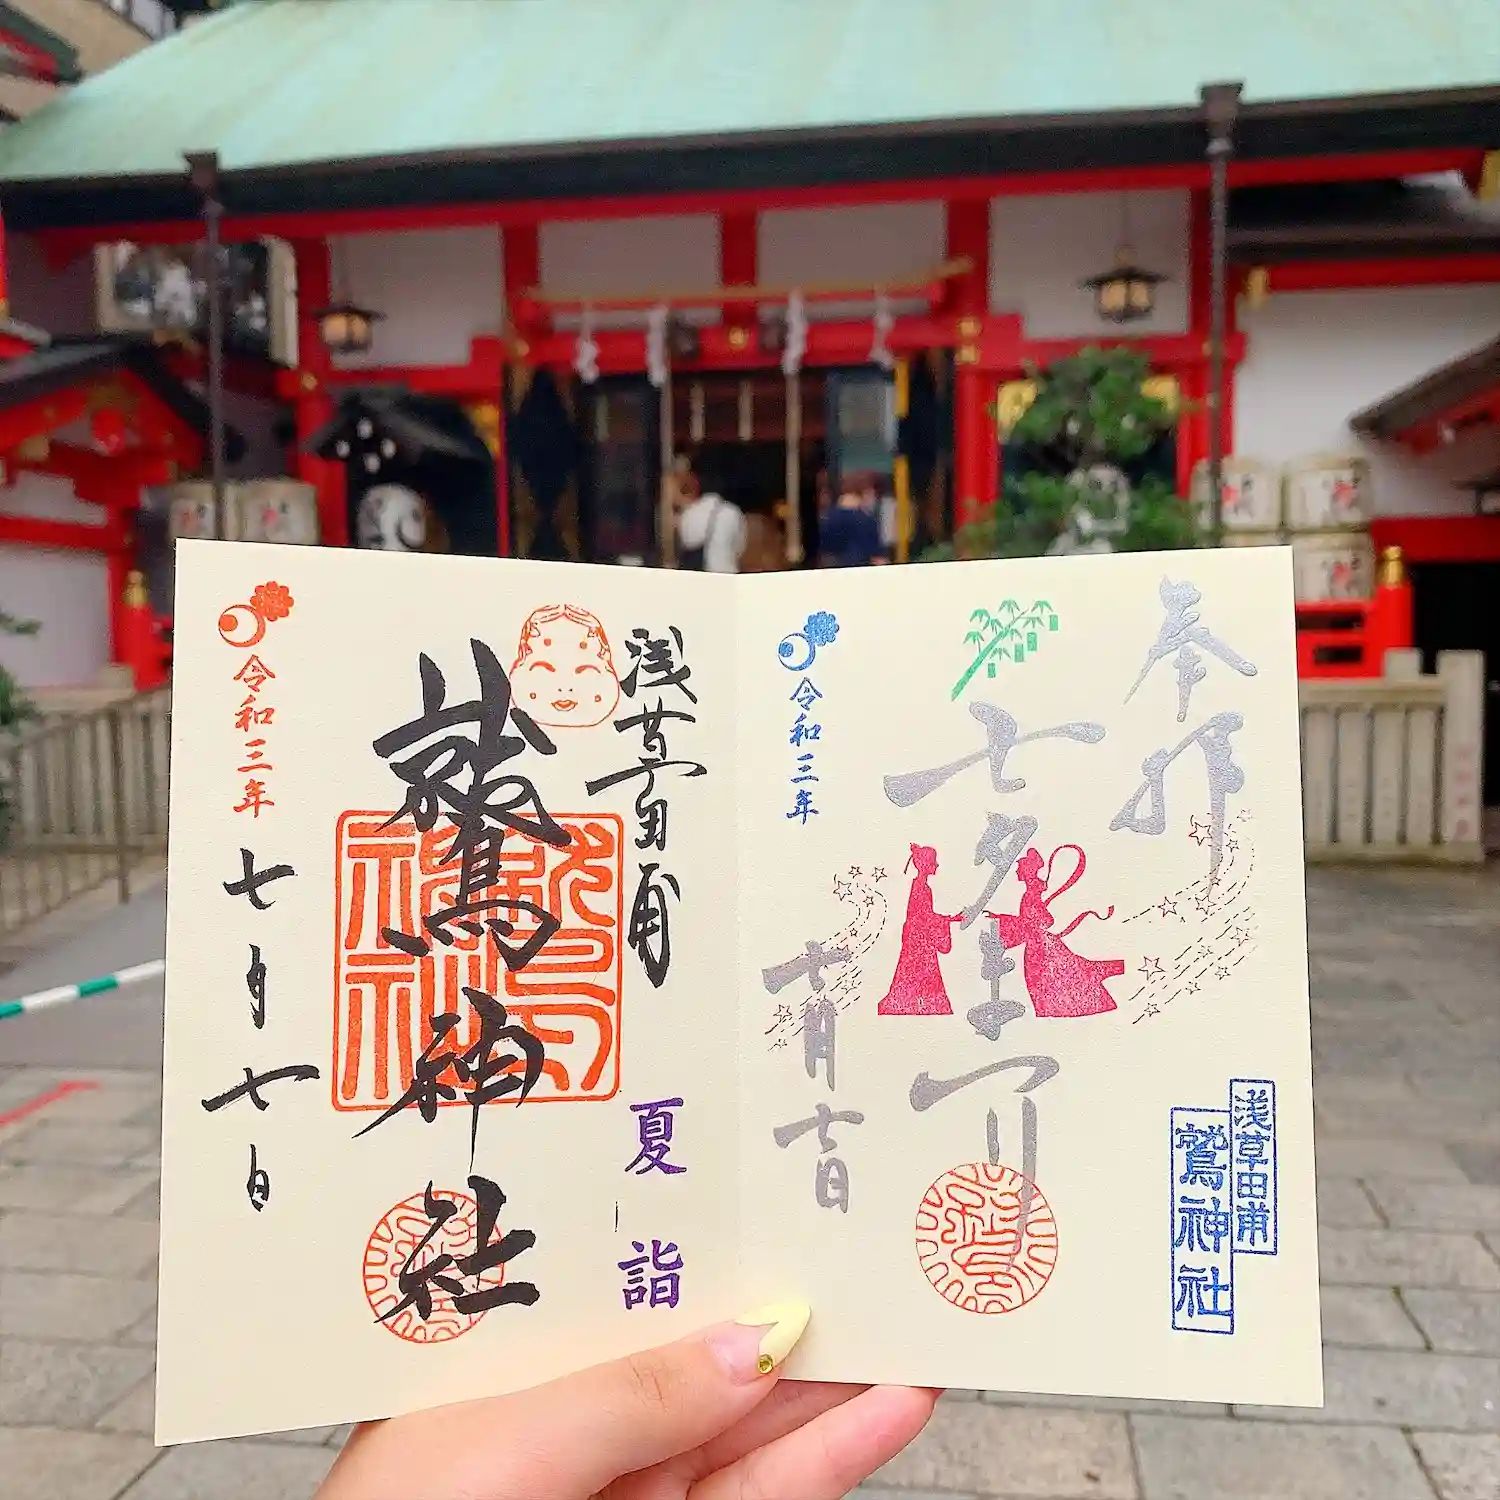 奉拝
七夕まつり
七月七日
令和三年
浅草田甫
鷲神社
浅草田甫
鷲神社
夏詣
令和三年
七月七日